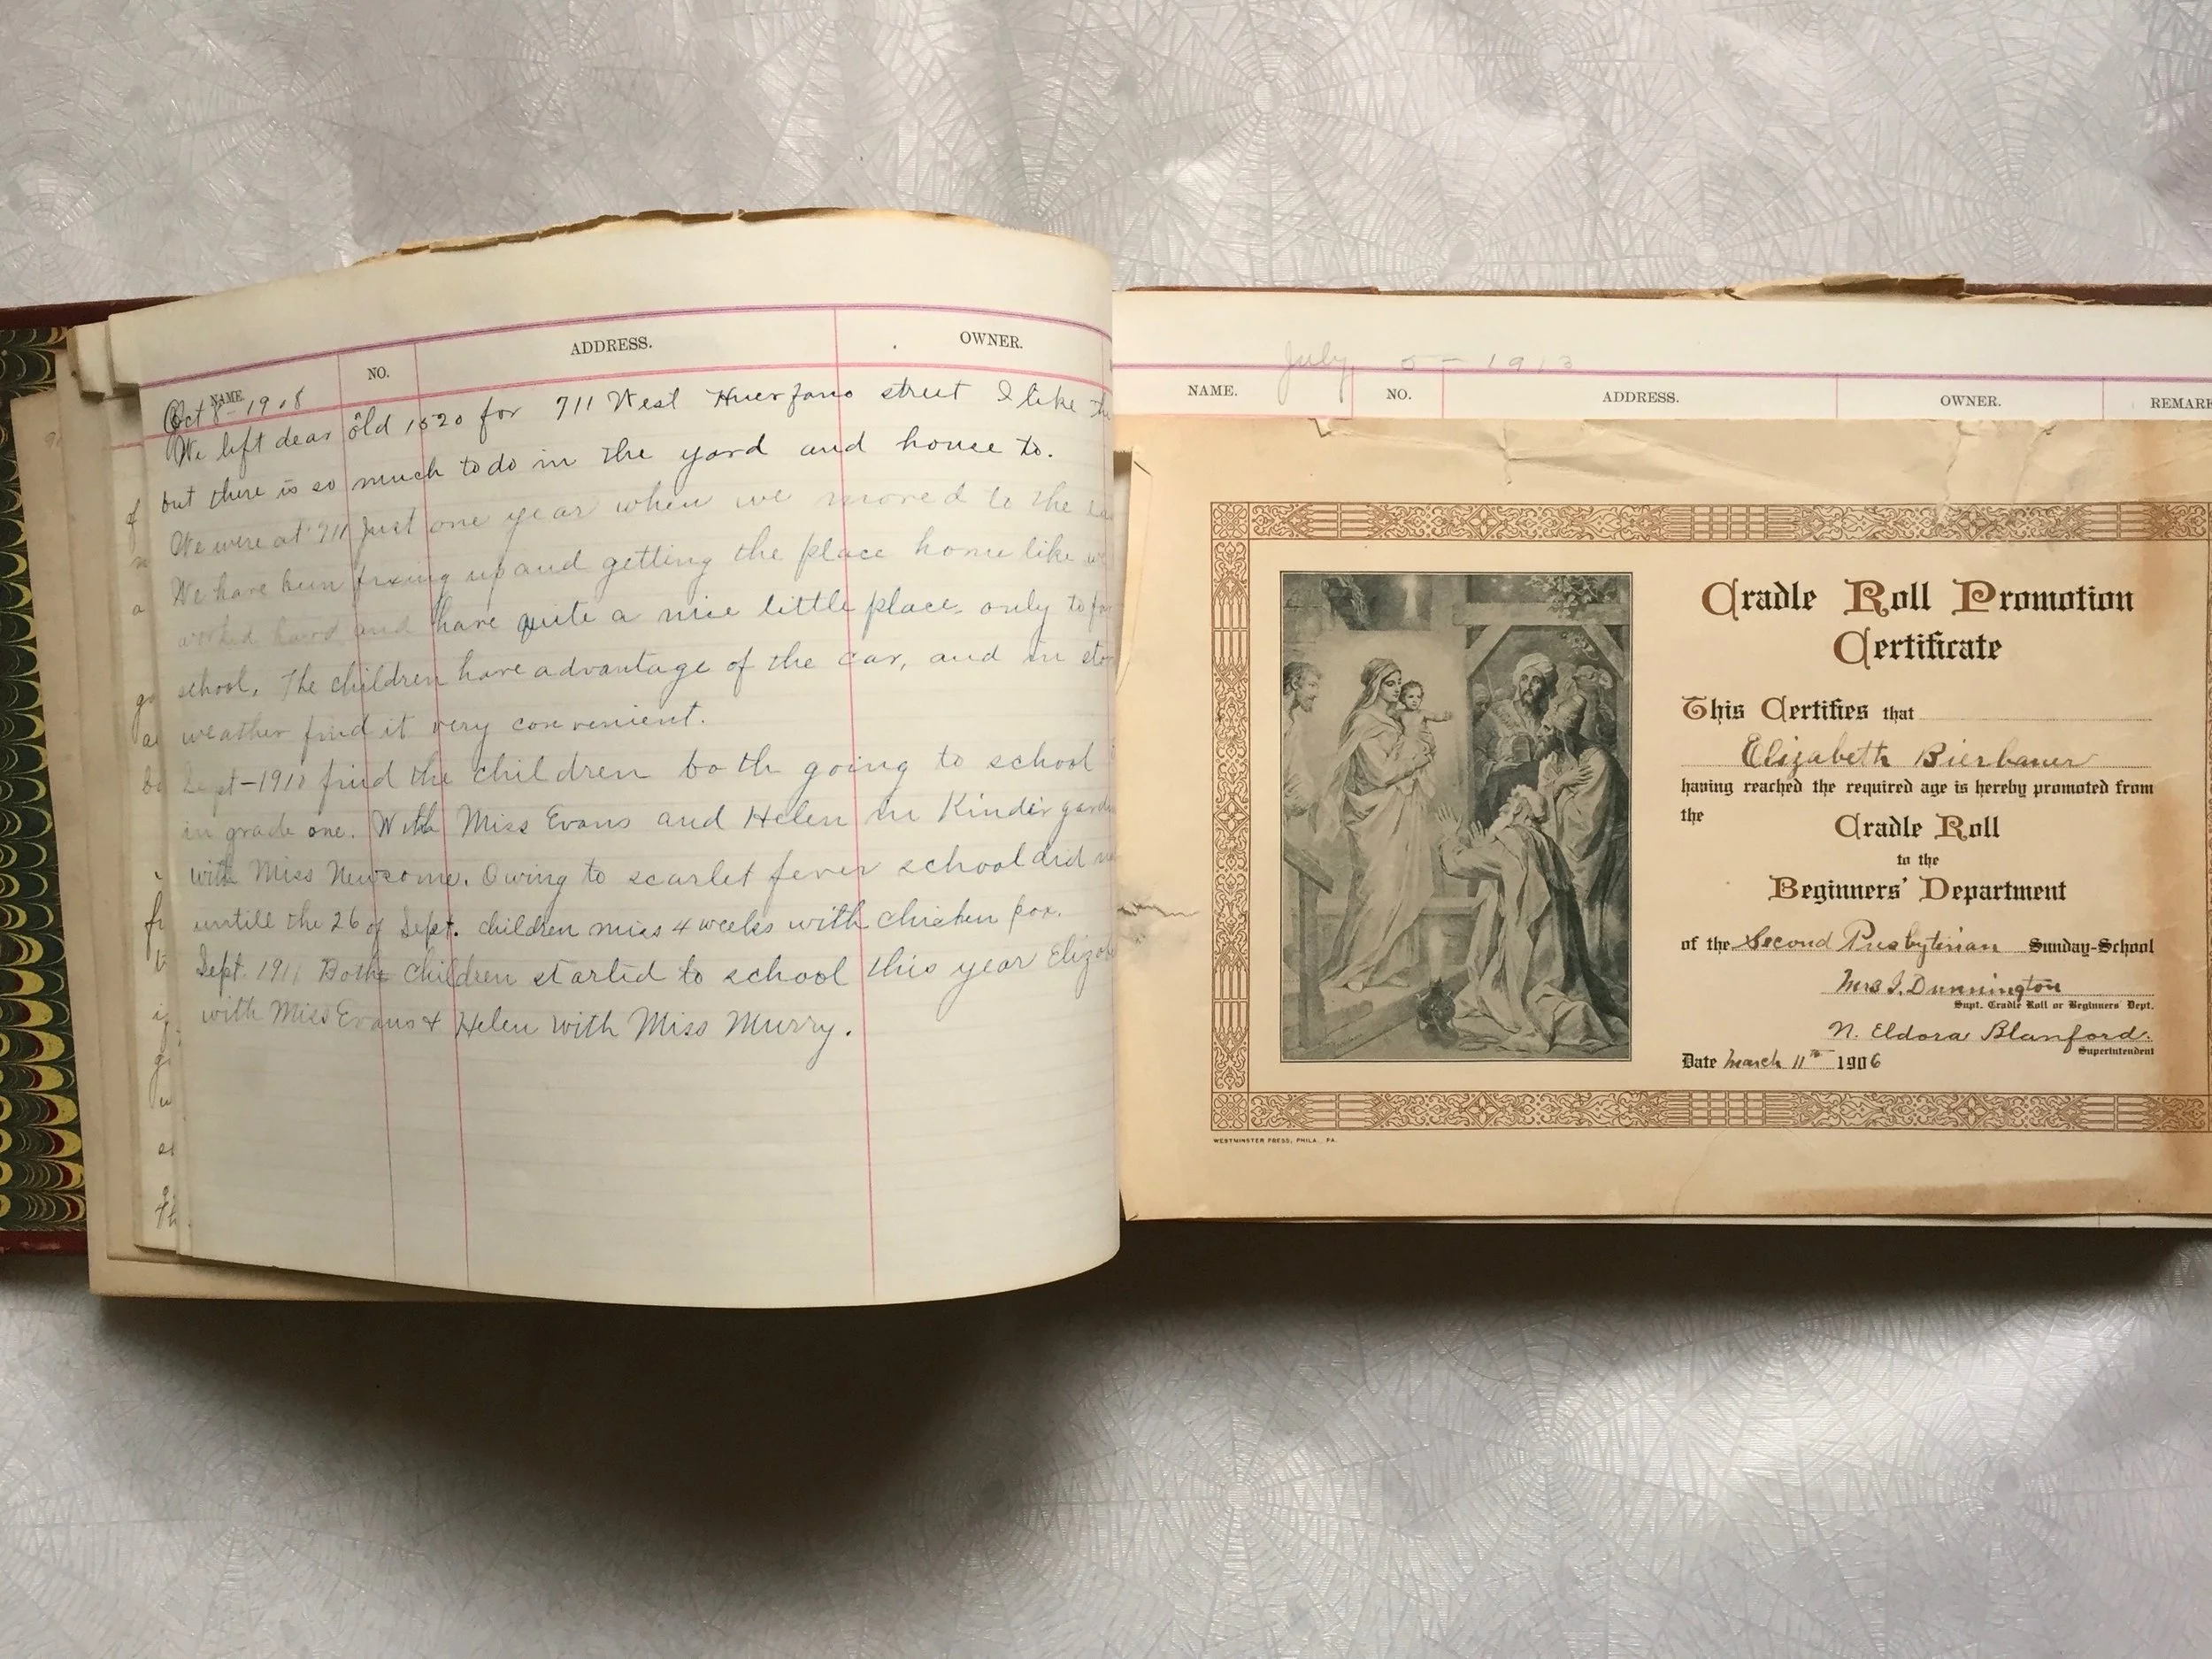 NAME. NO. ADDRESS. OWNER.
Oct 8 - 1908
We left dear old 1520 for 711 West Huerfano street I like the
but there is so much to do in the yard and house to.
We were at 711 just one year when we moved to the
We have been fixing up and getting the place home like
worked hard and have quite a nice little place. only to
school. The children have advantage of the car, and in
weather find it very convenient.
Sept-1910 find the children both going to school
in grade one. With Miss Evans and Helen in Kinder
with Miss Newsome. Owing to scarlet fever school did
untill the 26 of Sept. children miss 4 weeks with chicken pox.
Sept. 1911 Bothe children started to school this year
with Miss Evans & Helen with Miss Murry.
July 5 - 1913
NAME. NO. ADDRESS. OWNER. REMAR
Cradle Roll Promotion
Certificate
This Certifies that
Elizabeth Bierbauer
having reached the required age is hereby promoted from
the
Cradle Roll
to the
Beginners' Department
of the Second Presbyterian Sunday-School
Mrs I. Dunnington
Supt. Cradle Roll or Beginners' Dept.
N. Eldora Blanford.
Superintendent
Date March 11th 1906
WESTMINSTER PRESS, PHILA., PA.